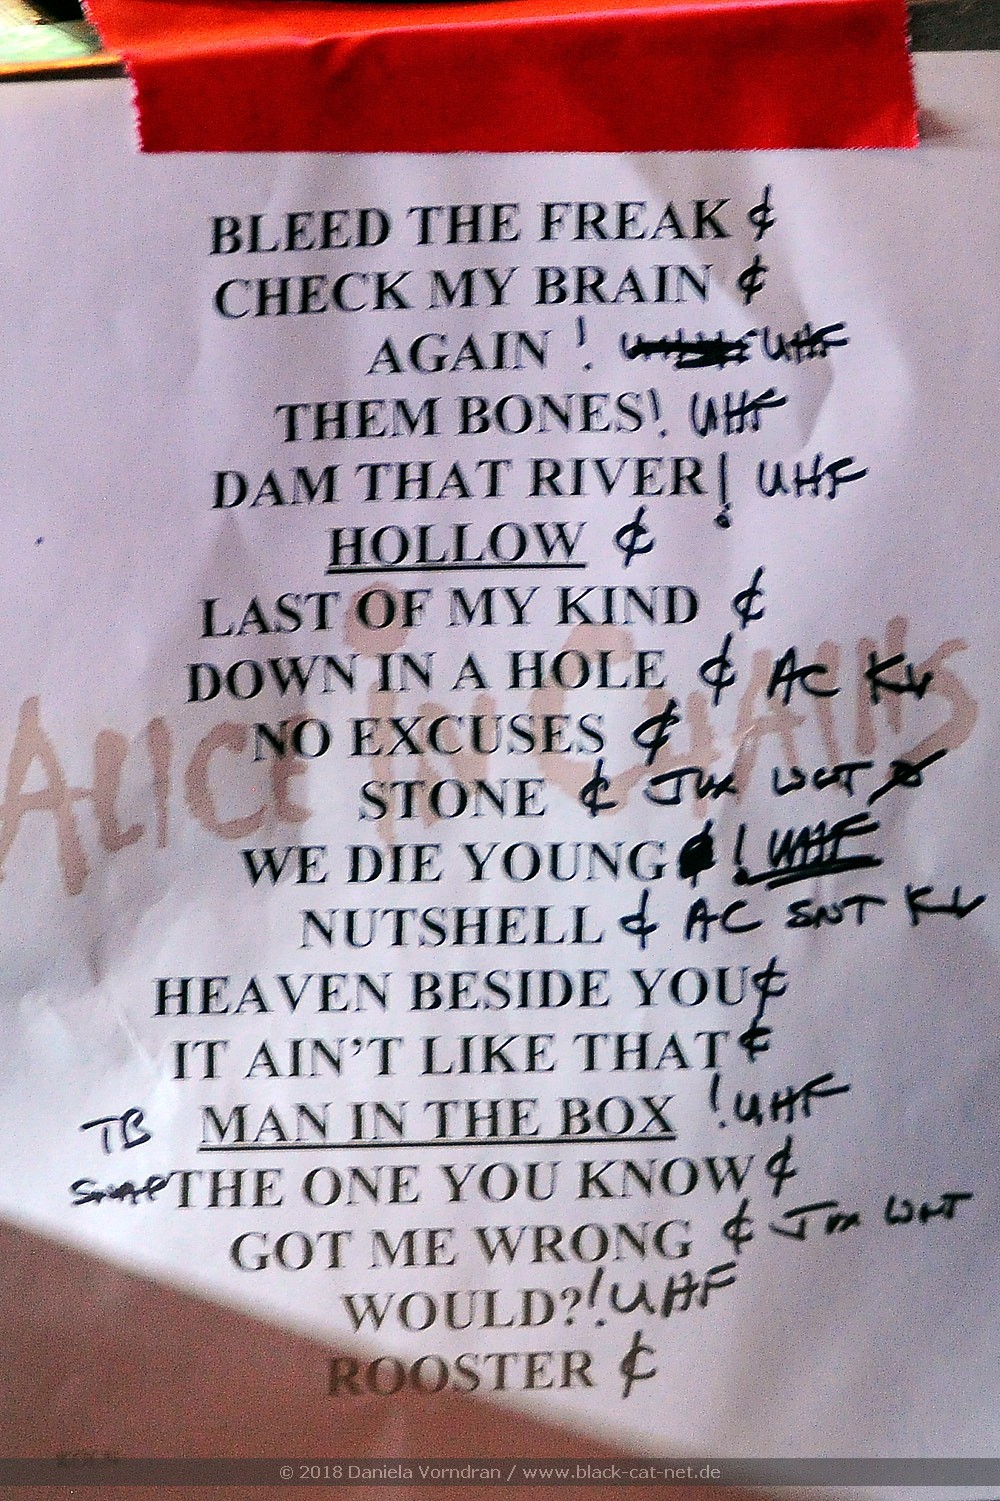 BLEED THE FREAK ¢
CHECK MY BRAIN ¢
AGAIN ! UHF
THEM BONES! UHF
DAM THAT RIVER! UHF
HOLLOW ¢
LAST OF MY KIND ¢
DOWN IN A HOLE ¢ AC
NO EXCUSES ¢
ALICE IN CHAINS
STONE ¢
WE DIE YOUNG ! UHF
NUTSHELL ¢ AC SNT
HEAVEN BESIDE YOU ¢
IT AIN'T LIKE THAT ¢
TB MAN IN THE BOX ! UHF
SNAP THE ONE YOU KNOW ¢
GOT ME WRONG ¢
WOULD?! UHF
ROOSTER ¢
© 2018 Daniela Vorndran / www.black-cat-net.de